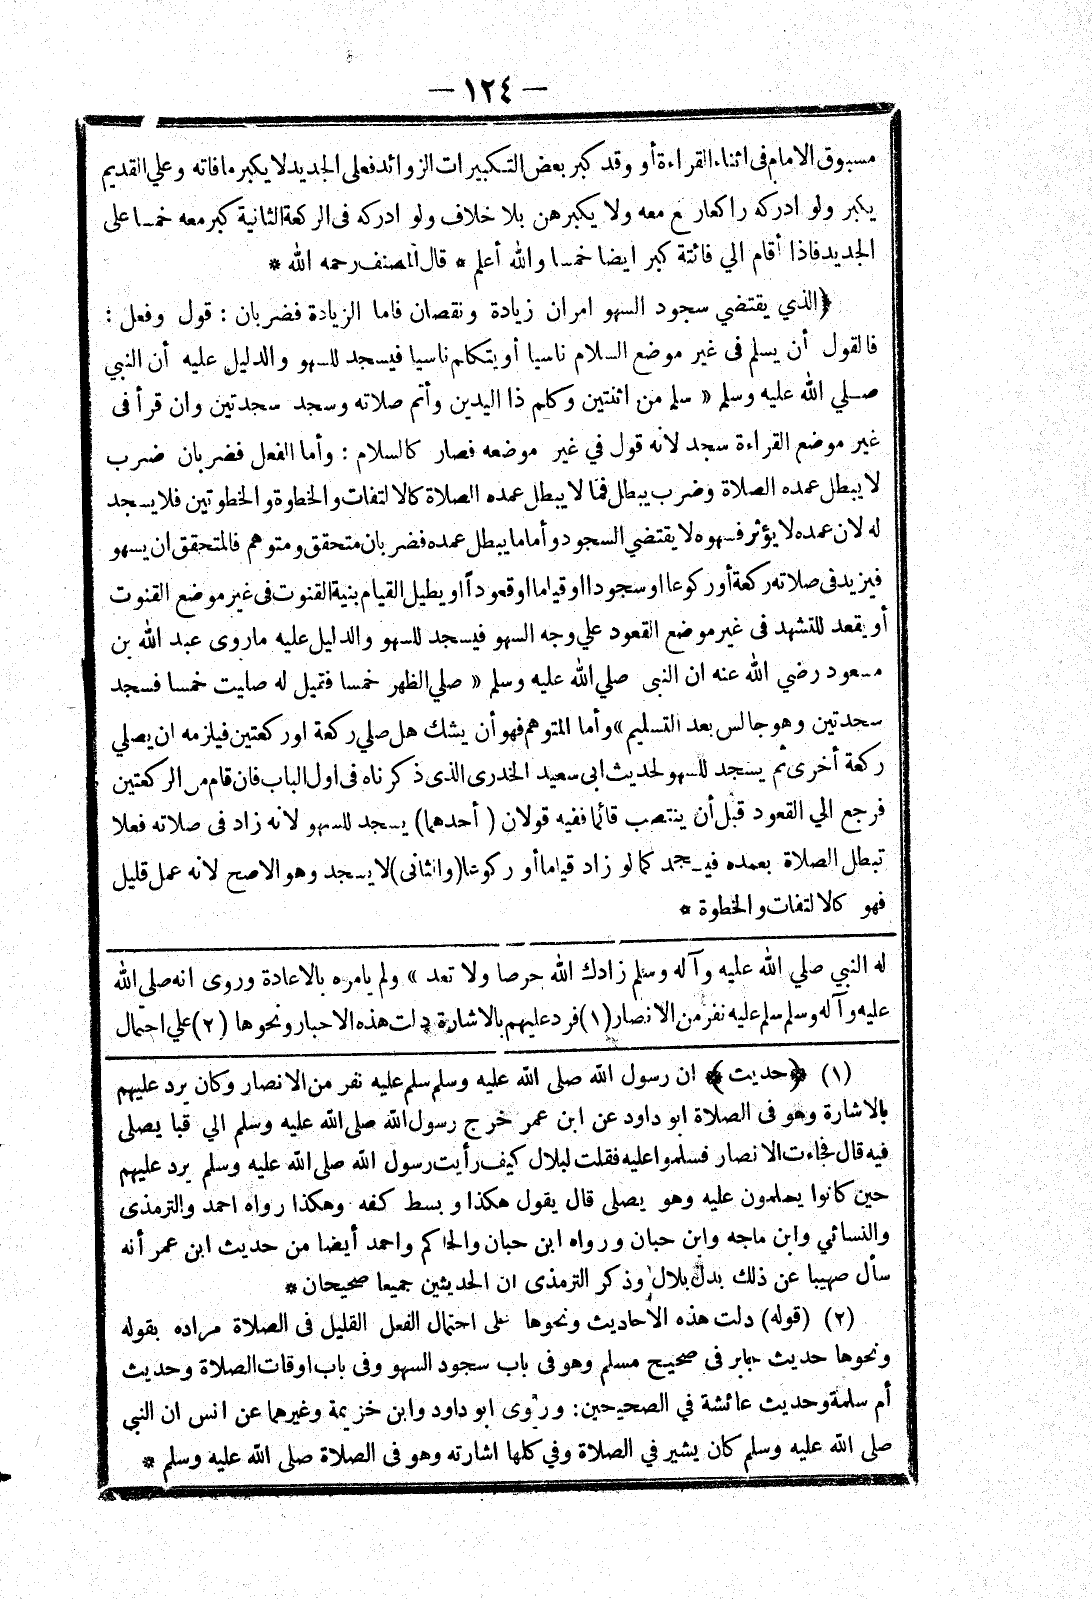 — ١٢٤ —
مسبوق الامام فى اثناء القراءة أو وقد كبر بعض التكبيرات الزوائد فعلى الجديد لا يكبر ما فاته وعلي القديم
يكبر ولو ادركه راكعا ركع معه ولا يكبرهن بلا خلاف ولو ادركه فى الركعة الثانية كبر معه خمسا على
الجديد فاذا أقام الي فائتة كبر ايضا خمسا والله أعلم * قال المصنف رحمه الله *
﴿الذي يقتضي سجود السهو امران زيادة ونقصان فاما الزيادة فضربان : قول وفعل :
فالقول أن يسلم فى غير موضع السلام ناسيا أو يتكلم ناسيا فيسجد للسهو والدليل عليه أن النبي
صلي الله عليه وسلم « سلم من اثنتين وكلم ذا اليدين وأتم صلاته وسجد سجدتين وان قرأ فى
غير موضع القراءة سجد لانه قول في غير موضعه فصار كالسلام : وأما الفعل فضربان ضرب
لا يبطل عمده الصلاة وضرب يبطل فما لا يبطل عمده الصلاة كالالتفات والخطوة والخطوتين فلا يسجد
له لان عمده لا يؤثر فسهوه لا يقتضي السجود وأما ما يبطل عمده فضربان متحقق ومتوهم فالمتحقق ان يسهو
فيزيد فى صلاته ركعة أو ركوعا او سجودا او قياما او قعوداً او يطيل القيام بنية القنوت فى غير موضع القنوت
أو يقعد للتشهد فى غير موضع القعود علي وجه السهو فيسجد للسهو والدليل عليه ما روى عبد الله بن
مسعود رضي الله عنه ان النبى صلي الله عليه وسلم « صلي الظهر خمسا فقيل له صليت خمسا فسجد
سجدتين وهو جالس بعد التسليم » وأما المتوهم فهو أن يشك هل صلي ركعة او ركعتين فيلزمه ان يصلي
ركعة أخرى ثم يسجد للسهو لحديث ابى سعيد الخدرى الذى ذكرناه فى اول الباب فان قام من الركعتين
فرجع الي القعود قبل أن ينتصب قائما ففيه قولان ( أحدهما ) يسجد للسهو لانه زاد فى صلاته فعلا
تبطل الصلاة بعمده فيسجد كما لو زاد قياما أو ركوعا (والثانى) لا يسجد وهو الاصح لانه عمل قليل
فهو كالالتفات والخطوة *
له النبي صلي الله عليه وآله وسلم زادك الله حرصا ولا تعد » ولم يامره بالاعادة وروى انه صلي الله
عليه وآله وسلم سلم عليه نفر من الانصار (١) فرد عليهم بالاشارة دلت هذه الاخبار ونحوها (٢) علي احتمال
(١) ﴿حديث﴾ ان رسول الله صلى الله عليه وسلم سلم عليه نفر من الانصار وكان يرد عليهم
بالاشارة وهو فى الصلاة ابو داود عن ابن عمر خرج رسول الله صلى الله عليه وسلم الي قبا يصلى
فيه قال فجاءت الانصار فسلموا عليه فقلت لبلال كيف رأيت رسول الله صلى الله عليه وسلم يرد عليهم
حين كانوا يسلمون عليه وهو يصلى قال يقول هكذا وبسط كفه وهكذا رواه احمد والترمذى
والنسائي وابن ماجه وابن حبان ورواه ابن حبان والحاكم واحمد أيضا من حديث ابن عمر أنه
سأل صهيبا عن ذلك بدل بلال وذكر الترمذى ان الحديثين جميعا صحيحان *
(٢) (قوله) دلت هذه الأحاديث ونحوها على احتمال الفعل القليل فى الصلاة مراده بقوله
ونحوها حديث جابر فى صحيح مسلم وهو فى باب سجود السهو وفى باب اوقات الصلاة وحديث
أم سلمة وحديث عائشة في الصحيحين : وروى ابو داود وابن خزيمة وغيرهما عن انس ان النبي
صلى الله عليه وسلم كان يشير في الصلاة وفي كلها اشارته وهو فى الصلاة صلى الله عليه وسلم *